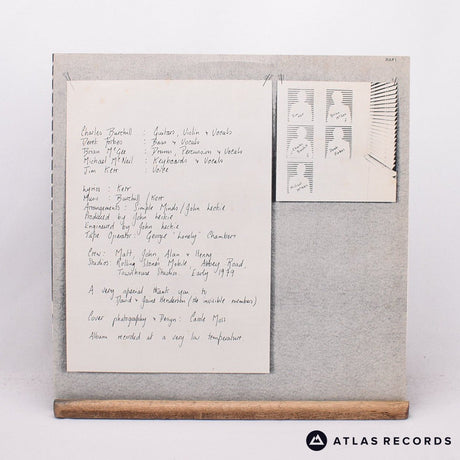 Charles Burchill : Guitars, Violin + Vocals
Derek Forbes : Bass + Vocals
Brian McGee : Drums, Percussion + Vocals
Michael McNeil : Keyboards + Vocals
Jim Kerr : Voice
Lyrics : Kerr
Music : Burchill / Kerr
Arrangements : Simple Minds / John Leckie
Produced by John Leckie
Engineered by John Leckie
Tape Operator: George "Lonely" Chambers
Crew: Matt, John, Alan + Henry
Studios: Rolling Stones Mobile, Abbey Road,
Townhouse Studios. Early 1979
A very special thank you to
David + Jaine Henderson (the invisible members)
Cover photography + Design: Carole Moss
Album recorded at a very low temperature
ATLAS RECORDS